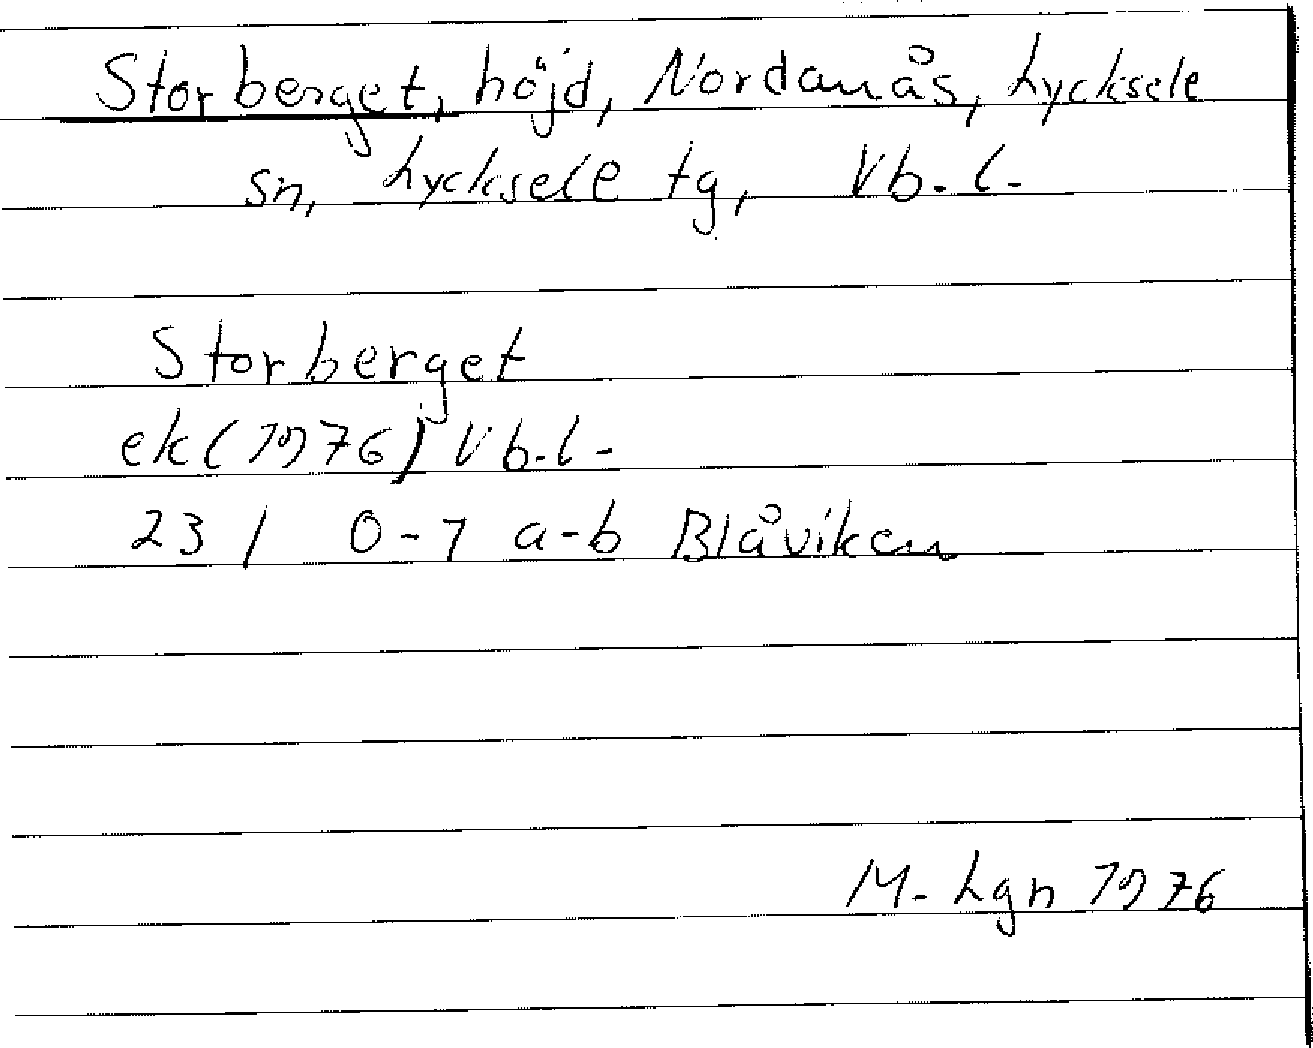 Storberget, höjd, Nordanås, Lycksele
sn, Lycksele tg, Vb. l.
Storberget
ek (1976) Vb. l.
23 I 0-1 a-b Blåviken
M. Lgn 1976